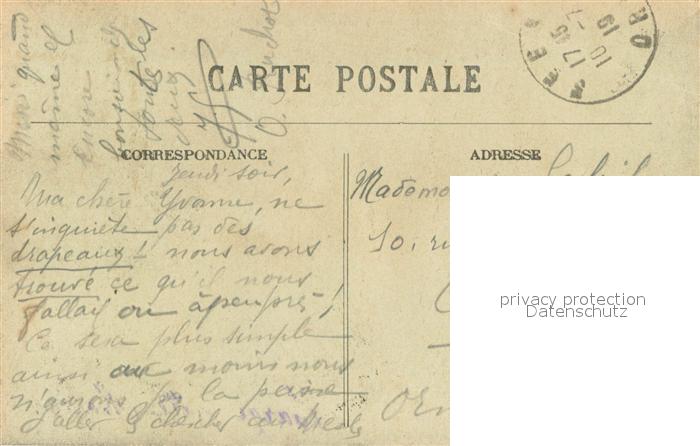 CARTE POSTALE
CORRESPONDANCE
ADRESSE
Jeudi soir,
Ma chère Yvonne, ne
t'inquiète pas des
drapeaux! nous avons
trouvé ce qu'il nous
fallait ou à peu près!
Ce sera plus simple
ainsi au moins nous
n'aurons pas la peine
d'aller les chercher au
Merci quand
même et
encore
bonsoir
toutes
deux
Mademo
10, ru
privacy protection
Datenschutz